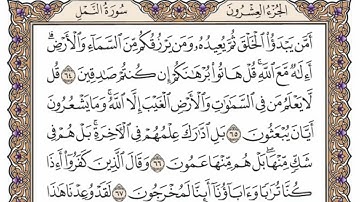 الجزء العشرون سورة النمل
أَمَّن يَبْدَؤُا۟ ٱلْخَلْقَ ثُمَّ يُعِيدُهُۥ وَمَن يَرْزُقُكُم مِّنَ ٱلسَّمَآءِ وَٱلْأَرْضِ ۗ
أَءِلَٰهٌ مَّعَ ٱللَّهِ ۚ قُلْ هَاتُوا۟ بُرْهَٰنَكُمْ إِن كُنتُمْ صَٰدِقِينَ ٦٤ قُل
لَّا يَعْلَمُ مَن فِى ٱلسَّمَٰوَٰتِ وَٱلْأَرْضِ ٱلْغَيْبَ إِلَّا ٱللَّهُ ۚ وَمَا يَشْعُرُونَ
أَيَّانَ يُبْعَثُونَ ٦٥ بَلِ ٱدَّٰرَكَ عِلْمُهُمْ فِى ٱلْءَاخِرَةِ ۚ بَلْ هُمْ فِى
شَكٍّ مِّنْهَا ۖ بَلْ هُم مِّنْهَا عَمُونَ ٦٦ وَقَالَ ٱلَّذِينَ كَفَرُوٓا۟ أَءِذَا
كُنَّا تُرَٰبًا وَءَابَآؤُنَآ أَئِنَّا لَمُخْرَجُونَ ٦٧ لَقَدْ وُعِدْنَا هَٰذَا